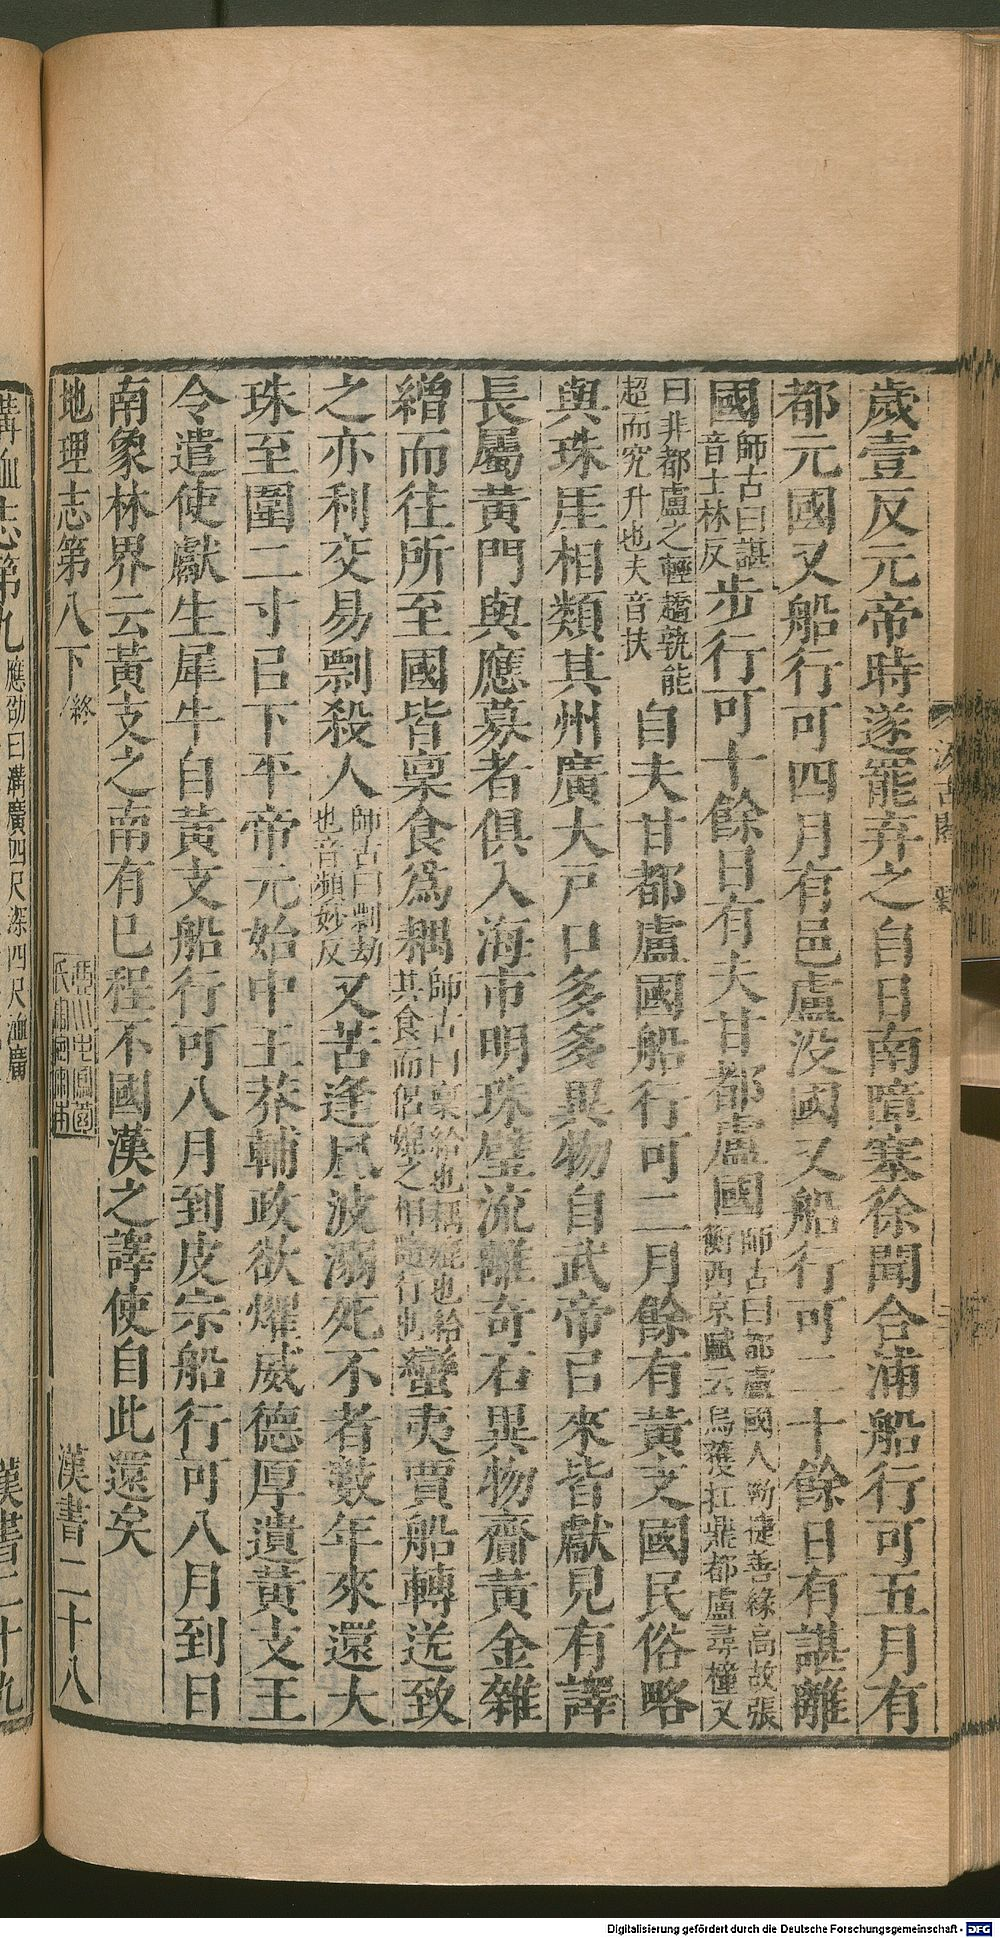 歲壹反元帝時遂罷弃之自日南障塞徐聞合浦船行可五月有
都元國又船行可四月有邑盧没國又船行可二十餘日有諶離
國師古曰諶音士林反步行可十餘日有夫甘都盧國師古曰都盧國人勁捷善緣高故張衡西京賦云烏獲扛鼎都盧尋橦又
曰非都盧之輕趫孰能超而究升也夫音扶自夫甘都盧國船行可二月餘有黃支國民俗略
與珠厓相類其州廣大戸口多多異物自武帝㠯來皆獻見有譯
長屬黃門與應募者俱入海市明珠璧流離奇石異物齎黃金雜
繒而往所至國皆稟食爲耦師古曰稟給也耦媲也給其食而侶媲之相隨行也蠻夷賈船轉送致
之亦利交易剽殺人師古曰剽劫也音頻妙反又苦逢風波溺死不者數年來還大
珠至圍二寸㠯下平帝元始中王莽輔政欲燿威德厚遺黃支王
令遣使獻生犀牛自黃支船行可八月到皮宗船行可八月到日
南象林界云黃支之南有已程不國漢之譯使自此還矣
地理志第八下 終 漢書二十八
溝洫志第九 應劭曰溝廣四尺深四尺洫廣 漢書二十九
Digitalisierung gefördert durch die Deutsche Forschungsgemeinschaft - DFG